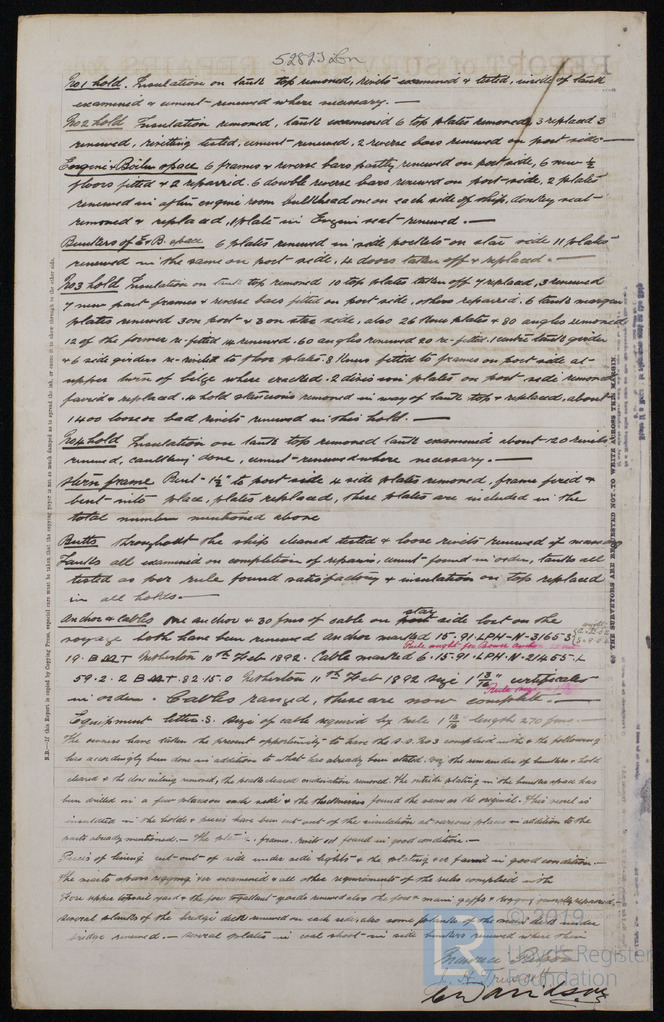 52823 Lon
No1 hold. Insulation on tank top removed, rivets examined & tested, inside of tank
examined & cement renewed where necessary. —
No2 hold Insulation removed, tank examined 6 top plates removed, 3 replaced 3
renewed, riveting tested, cement renewed, 2 reverse bars renewed on port side —
Engine & Boiler space 6 frames & reverse bars partly renewed on port side, 6 new ½
floors fitted & 2 repaired. 6 double reverse bars renewed on port side, 2 plates
renewed in after engine room bulkhead one on each side of ship, donkey seat
removed & replaced, 1 plate in Engine seat renewed. —
Bunkers of E & B. space 6 plates renewed in side pockets on star side 11 plates
renewed in the same on port side, 4 doors taken off & replaced. —
No3 hold Insulation on tank top removed 10 top plates taken off 7 replaced, 3 renewed
7 new part frames & reverse bars fitted on port side, others repaired, 6 tank margin
plates renewed 3 on port & 3 on star side, also 26 knee plates & 80 angles removed
12 of the former re-fitted 14 renewed. 60 angles renewed 20 re-fitted. 1 centre tank girder
& 6 side girders re-riveted to floor plates. 8 knees fitted to frames on port side at
upper turn of bilge where cracked. 2 plates on port side removed
faired & replaced. 4 hold stancions removed in way of tank top & replaced, about
1400 loose or bad rivets renewed in this hold. —
No4 hold Insulation on tank top removed tank examined about 120 rivets
renewed, caulking done, cement renewed where necessary. —
Stern frame Bent 1½" to port side 4 side plates removed, frame fired &
bent into place, plates replaced, these plates are included in the
total number mentioned above
Butts throughout the ship cleaned tested & loose rivets renewed if necessary
Tanks all examined on completion of repairs, cement found in order, tanks all
tested as per rule found satisfactory & insulation on top replaced
in all holds. —
Anchor & Cables One anchor & 30 fms of cable on star side lost on the
voyage both have been renewed Anchor marked 15-91-LPH-N-3165-3
Rule weight for Bower
19. Netherton 10th Feb 1892. Cable marked 6-15-91-LPH-N-21455-L
59.2.2 82.15.0 Netherton 11th Feb 1892 size 1 13/16" certificates
Rule size
in order. Cables ranged, these are now complete. —
Equipment letter S. Size of cable required by rule 1 13/16 length 270 fms. —
The owners have taken the present opportunity to have the S.S. No3 complied with & the following
has accordingly been done in addition to what has already been stated. the remainder of bunkers & hold
cleared & the close ceiling removed, the peaks cleared oxidation removed. The outside plating in the bunker space has
been drilled in a few places on each side & the thicknesses found the same as the original. This vessel is
insulated in the holds & pieces have been cut out of the insulation at various places in addition to the
parts already mentioned. — The frames, rivets &c found in good condition. —
Pieces of lining cut out of side under side lights & the plating &c found in good condition. —
The masts spars rigging &c examined & all other requirements of the rules complied with
Fore upper topsail yard & the fore topgallant yards renewed also the fore & main gaffs & rigging repaired. —
several planks of the bridge deck renewed on each side, also some planks of the main deck under
bridge renewed. — several plates in coal shoot in side bunkers renewed where thin
C. Davidson
N.B.—If this Report is copied by Copying Press, especial care must be taken that the copying paper is not so much damped as to spread the ink, or cause it to show through to the other side.
THE SURVEYORS ARE REQUESTED NOT TO WRITE ACROSS THIS MARGIN
© 2019
Lloyd's Register
Foundation
LR